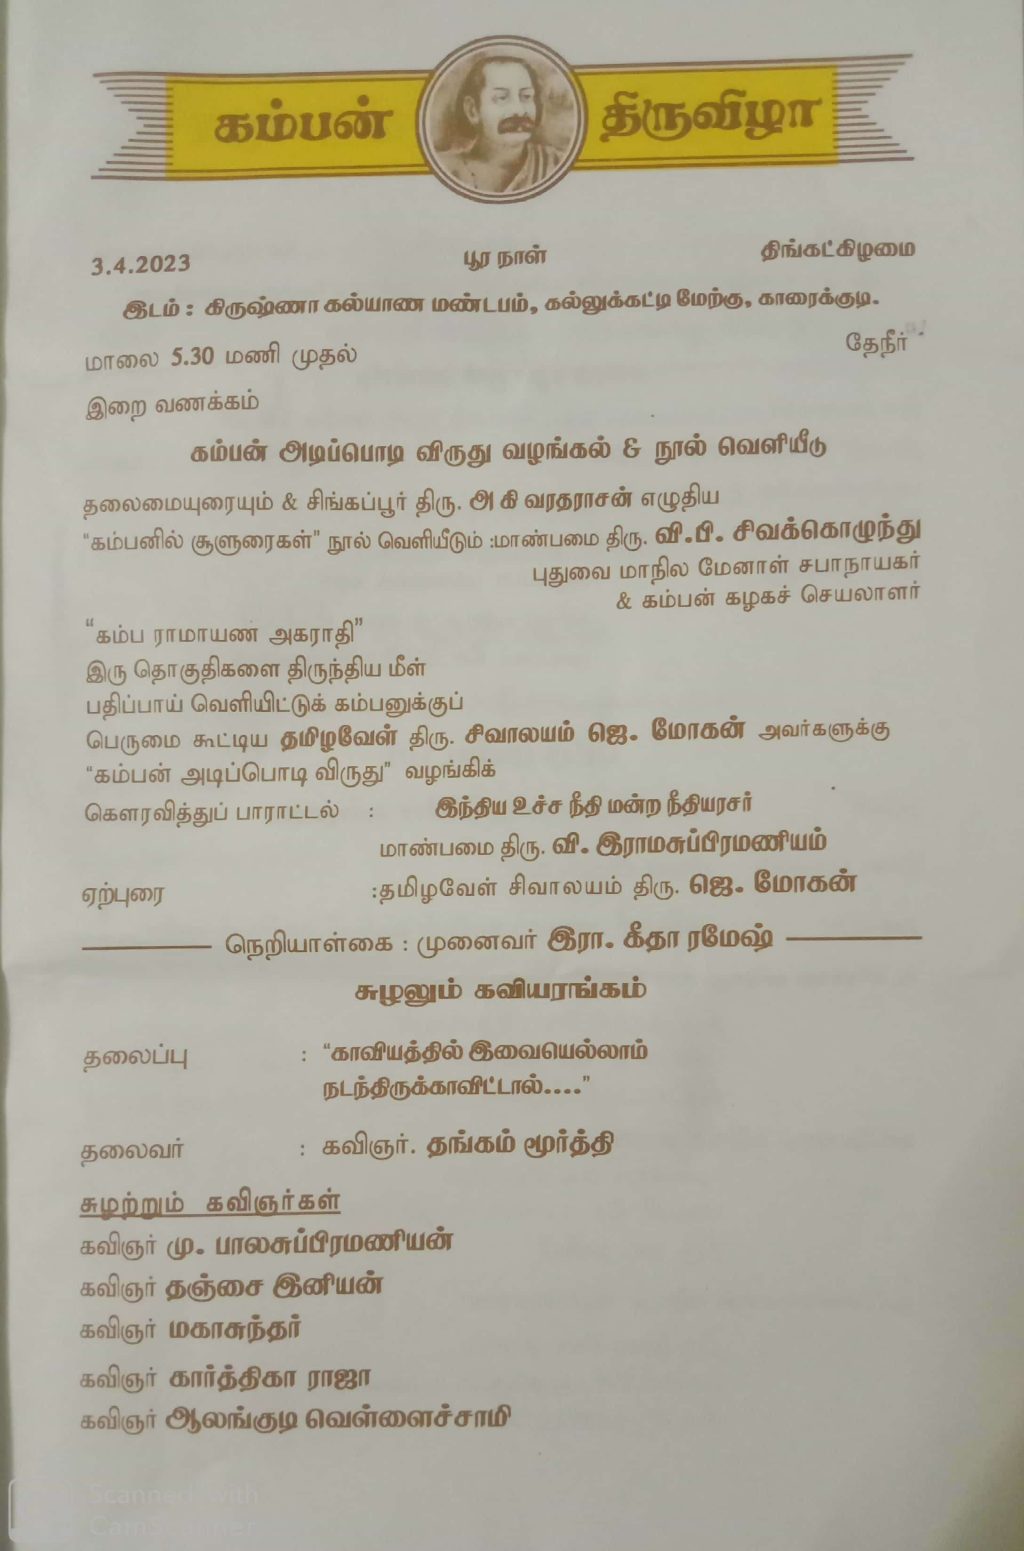 கம்பன் திருவிழா
3.4.2023 பூர நாள் திங்கட்கிழமை
இடம் : கிருஷ்ணா கல்யாண மண்டபம், கல்லுக்கட்டி மேற்கு, காரைக்குடி.
மாலை 5.30 மணி முதல் தேநீர்
இறை வணக்கம்
கம்பன் அடிப்பொடி விருது வழங்கல் & நூல் வெளியீடு
தலைமையுரையும் & சிங்கப்பூர் திரு. அ கி வரதராசன் எழுதிய
“கம்பனில் சூளுரைகள்” நூல் வெளியீடும் :மாண்பமை திரு. வி.பி. சிவக்கொழுந்து
புதுவை மாநில மேனாள் சபாநாயகர்
& கம்பன் கழகச் செயலாளர்
“கம்ப ராமாயண அகராதி”
இரு தொகுதிகளை திருந்திய மீள்
பதிப்பாய் வெளியிட்டுக் கம்பனுக்குப்
பெருமை கூட்டிய தமிழவேள் திரு. சிவாலயம் ஜெ. மோகன் அவர்களுக்கு
“கம்பன் அடிப்பொடி விருது” வழங்கிக்
கௌரவித்துப் பாராட்டல் : இந்திய உச்ச நீதி மன்ற நீதியரசர்
மாண்பமை திரு. வி. இராமசுப்பிரமணியம்
ஏற்புரை :தமிழவேள் சிவாலயம் திரு. ஜெ. மோகன்
நெறியாள்கை : முனைவர் இரா. கீதா ரமேஷ்
சுழலும் கவியரங்கம்
தலைப்பு : “காவியத்தில் இவையெல்லாம்
நடந்திருக்காவிட்டால்....”
தலைவர் : கவிஞர். தங்கம் மூர்த்தி
சுழற்றும் கவிஞர்கள்
கவிஞர் மு. பாலசுப்பிரமணியன்
கவிஞர் தஞ்சை இனியன்
கவிஞர் மகாசுந்தர்
கவிஞர் கார்த்திகா ராஜா
கவிஞர் ஆலங்குடி வெள்ளைச்சாமி
Scanned with
CamScanner